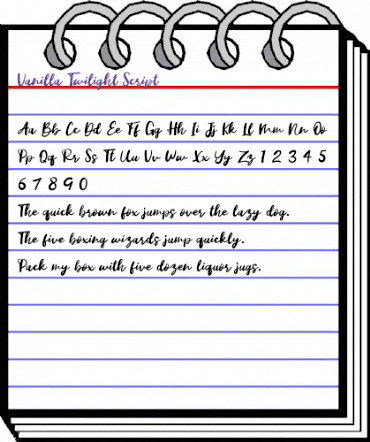 Vanilla Twilight Script
Aa Bb Cc Dd Ee Ff Gg Hh Ii Jj Kk Ll Mm Nn Oo
Pp Qq Rr Ss Tt Uu Vv Ww Xx Yy Zz 1 2 3 4 5
6 7 8 9 0
The quick brown fox jumps over the lazy dog.
The five boxing wizards jump quickly.
Pack my box with five dozen liquor jugs.